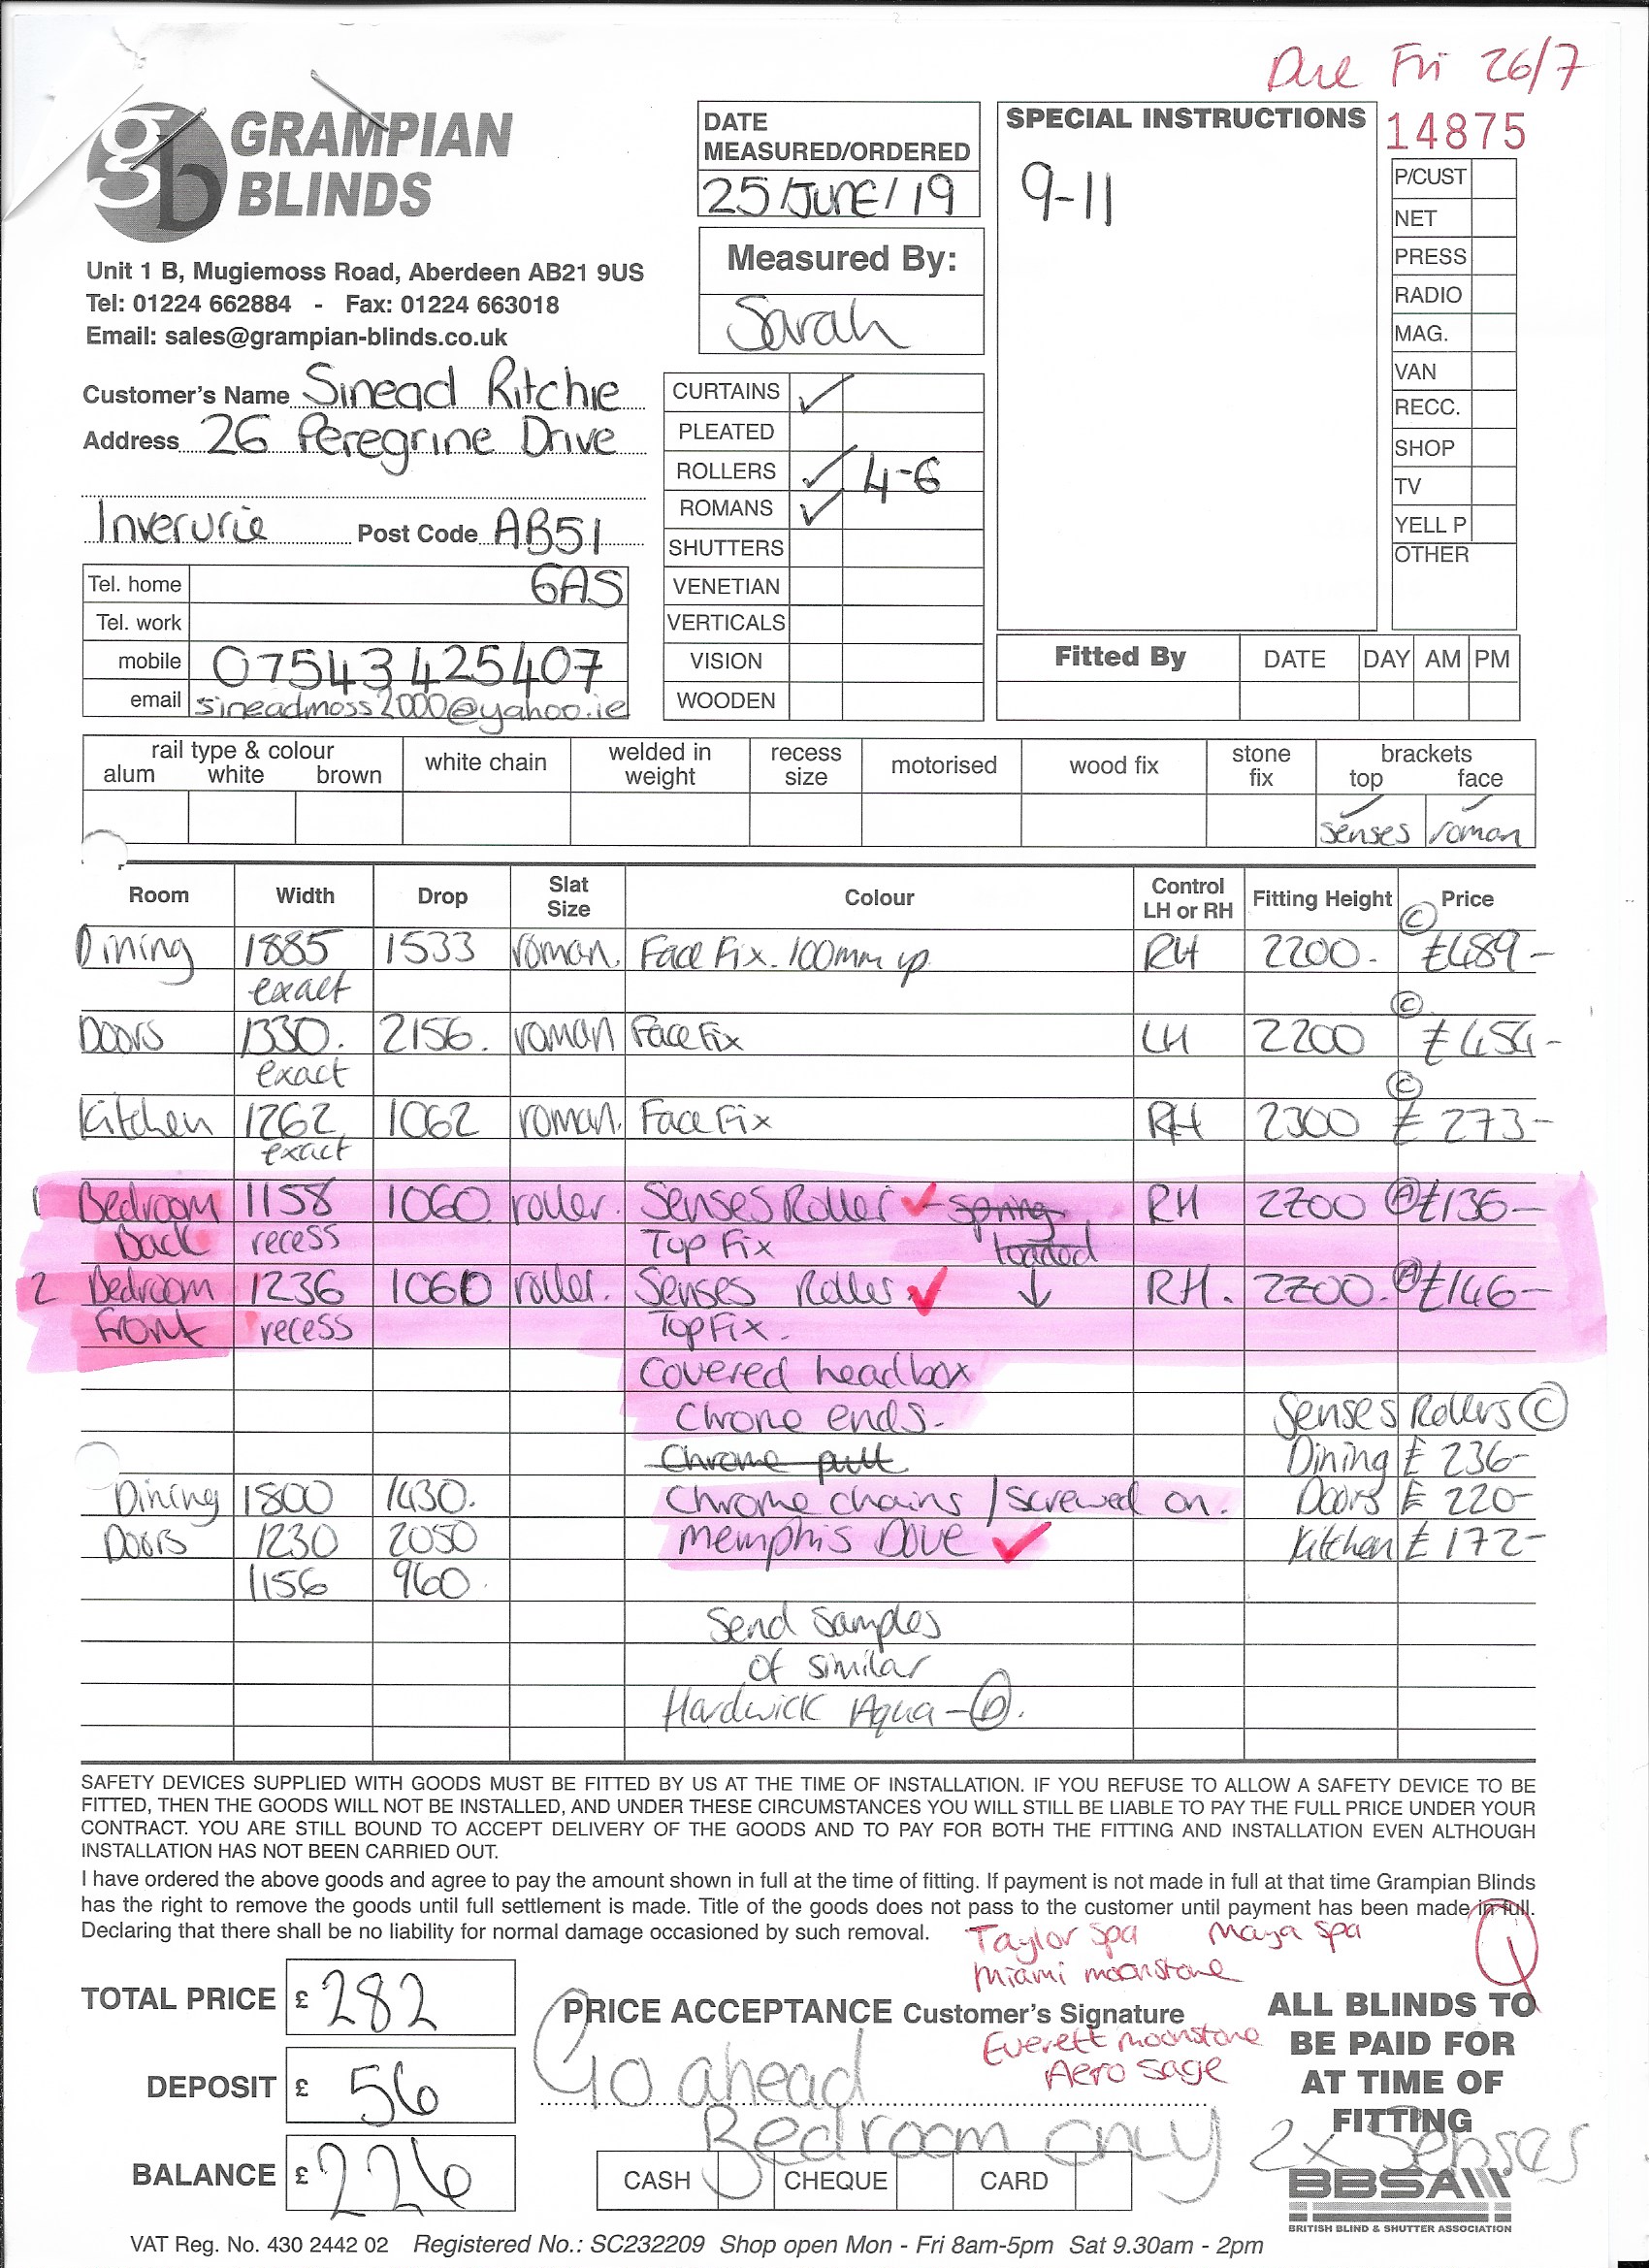 Due Fri 26/7
gb GRAMPIAN BLINDS
Unit 1 B, Mugiemoss Road, Aberdeen AB21 9US
Tel: 01224 662884 - Fax: 01224 663018
Email: sales@grampian-blinds.co.uk
Customer's Name Sinead Ritchie
Address 26 Peregrine Drive
Inverurie Post Code AB51
6AS
Tel. home
Tel. work
mobile 07543 425407
email sineadmoss2000@yahoo.ie
DATE MEASURED/ORDERED
25/JUNE/19
Measured By:
Sarah
CURTAINS ✓
PLEATED
ROLLERS ✓ 4-6
ROMANS ✓
SHUTTERS
VENETIAN
VERTICALS
VISION
WOODEN
SPECIAL INSTRUCTIONS
9-11
14875
P/CUST
NET
PRESS
RADIO
MAG.
VAN
RECC.
SHOP
TV
YELL P
OTHER
Fitted By DATE DAY AM PM
rail type & colour white chain welded in weight recess size motorised wood fix stone fix brackets
alum white brown top face
✓ senses ✓ roman
Room Width Drop Slat Size Colour Control LH or RH Fitting Height Price
Dining 1885 1533 roman. Face Fix. 100mm up RH 2200. © £489-
exact
Doors 1330. 2156. roman Face Fix LH 2200 © £454-
exact
Kitchen 1262 1062 roman. Face Fix RH 2300 © £273-
exact
1 Bedroom 1158 1060 roller. Senses Roller ✓ - spring RH 2200 Ⓐ £136-
Back recess Top Fix loaded
2 Bedroom 1236 1060 roller. Senses Roller ✓ ↓ RH. 2200. Ⓐ £146-
Front recess Top Fix.
Covered headbox
Chrome ends. Senses Rollers ©
Chrome pull Dining £ 236-
Dining 1800 1430. Chrome chains / screwed on. Doors £ 220-
Doors 1230 2050 Memphis Dove ✓ Kitchen £ 172-
1156 960.
Send samples
of similar
Hardwick Aqua -
SAFETY DEVICES SUPPLIED WITH GOODS MUST BE FITTED BY US AT THE TIME OF INSTALLATION. IF YOU REFUSE TO ALLOW A SAFETY DEVICE TO BE
FITTED, THEN THE GOODS WILL NOT BE INSTALLED, AND UNDER THESE CIRCUMSTANCES YOU WILL STILL BE LIABLE TO PAY THE FULL PRICE UNDER YOUR
CONTRACT. YOU ARE STILL BOUND TO ACCEPT DELIVERY OF THE GOODS AND TO PAY FOR BOTH THE FITTING AND INSTALLATION EVEN ALTHOUGH
INSTALLATION HAS NOT BEEN CARRIED OUT.
I have ordered the above goods and agree to pay the amount shown in full at the time of fitting. If payment is not made in full at that time Grampian Blinds
has the right to remove the goods until full settlement is made. Title of the goods does not pass to the customer until payment has been made in full.
Declaring that there shall be no liability for normal damage occasioned by such removal.
Taylor Spa Maya Spa
Miami moonstone
TOTAL PRICE £ 282
DEPOSIT £ 56
BALANCE £ 226
PRICE ACCEPTANCE Customer's Signature
Everett moonstone
Aero sage
Go ahead
Bedroom only 2x Senses
CASH CHEQUE CARD
ALL BLINDS TO
BE PAID FOR
AT TIME OF
FITTING
BBSA
BRITISH BLIND & SHUTTER ASSOCIATION
VAT Reg. No. 430 2442 02 Registered No.: SC232209 Shop open Mon - Fri 8am-5pm Sat 9.30am - 2pm